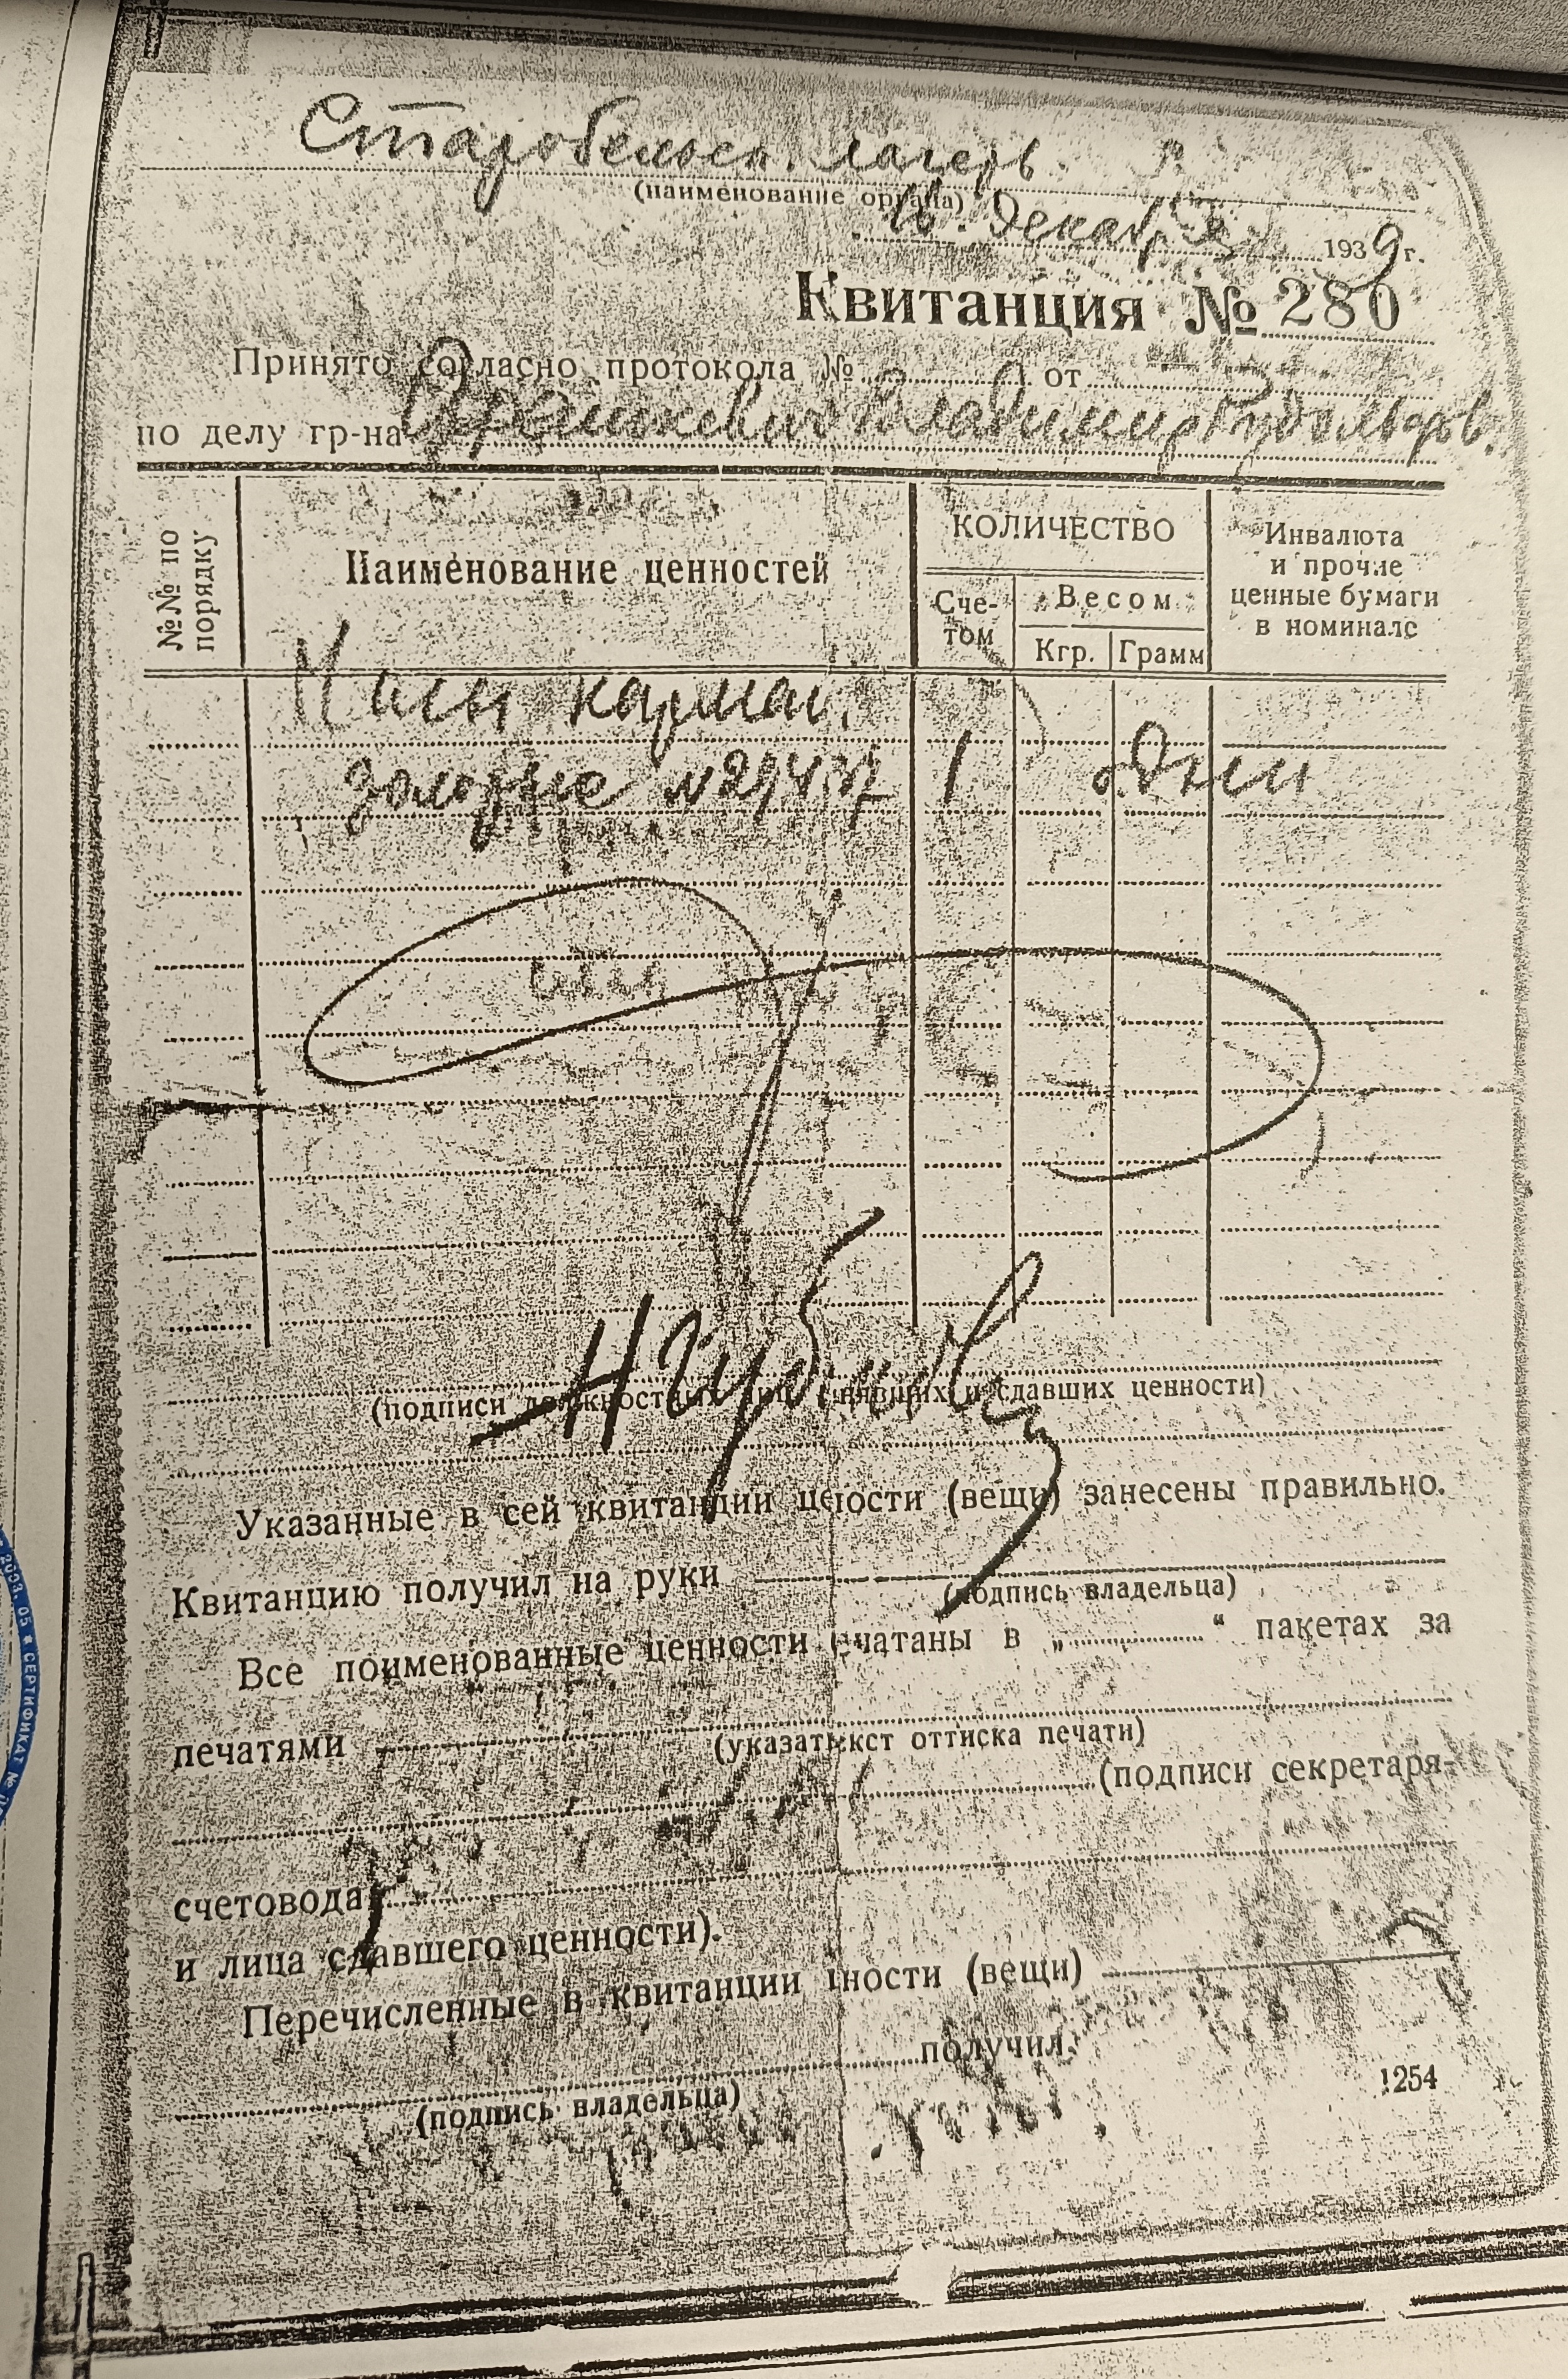 Старобельск. лагерь
(наименование органа)
16. декабря 1939 г.
Квитанция № 280
Принято согласно протокола № от
по делу гр-на Владимир Рудольфов.
№№ по порядку
Наименование ценностей
КОЛИЧЕСТВО
Сче-
том
Весом
Кгр. Грамм
Инвалюта
и прочие
ценные бумаги
в номинале
Часы карман.
золотые № 1 одни
(подписи должностных лиц принявших и сдавших ценности)
Указанные в сей квитанции цености (вещи) занесены правильно.
Квитанцию получил на руки
(подпись владельца)
Все поименованные ценности счатаны в „ “ пакетах за
печатями
(указать текст оттиска печати)
(подписи секретаря-
счетовода
и лица сдавшего ценности).
Перечисленные в квитанции ности (вещи)
получил.
(подпись владельца)
1254
СЕРТИФИКАТ №